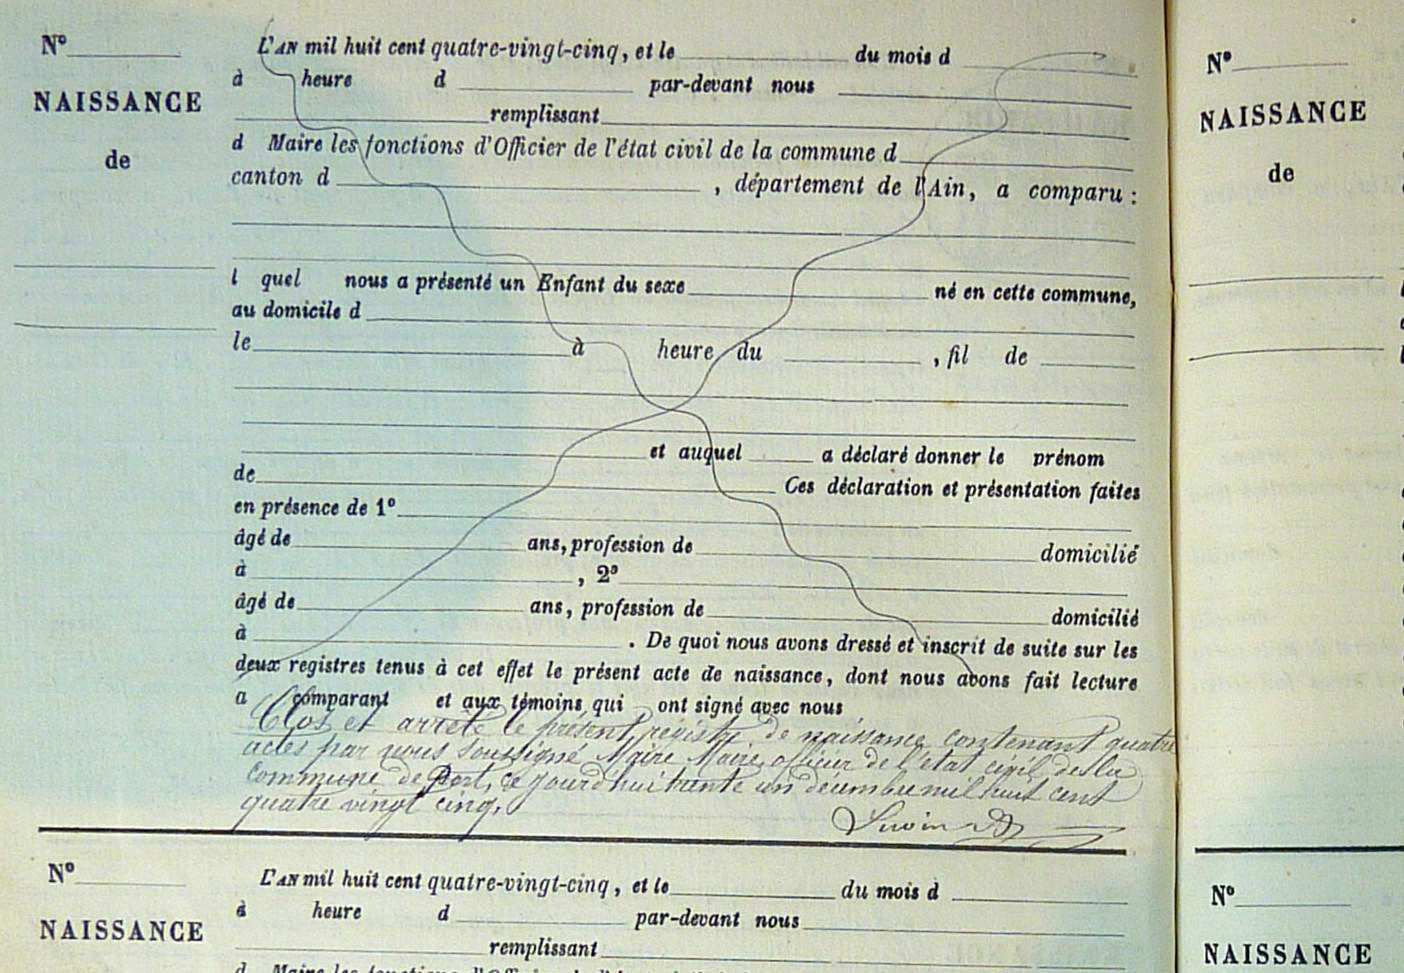 N° NAISSANCE de
L'AN mil huit cent quatre-vingt-cinq, et le du mois d
à heure d par-devant nous
remplissant
d Maire les fonctions d'Officier de l'état civil de la commune d
canton d , département de l'Ain, a comparu :
l quel nous a présenté un Enfant du sexe né en cette commune,
au domicile d
le à heure du , fil de
et auquel a déclaré donner le prénom
de Ces déclaration et présentation faites
en présence de 1°
âgé de ans, profession de domicilié
à , 2°
âgé de ans, profession de domicilié
à . De quoi nous avons dressé et inscrit de suite sur les
deux registres tenus à cet effet le présent acte de naissance, dont nous avons fait lecture
a comparant et aux témoins qui ont signé avec nous
Clos et arrêté le présent régistre de naissance contenant quatre
actes par nous soussigné Maire Maire, officier de l'état civil de la
commune de Port, ce jourd'hui trente un décembre mil huit cent
quatre vingt cinq.
N° NAISSANCE
L'AN mil huit cent quatre-vingt-cinq, et le du mois d
à heure d par-devant nous
remplissant
d Maire les fonctions d'Officier de l'état civil de la commune d
N°
NAISSANCE
de
N°
NAISSANCE